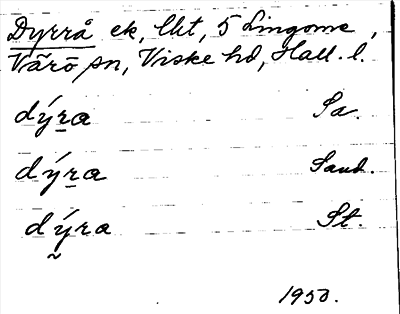 Dyrrå ek, lht, 5 Lingome,
Värö sn, Viske hd, Hall. l.
dýra Sa.
dýra Sand.
dýra St.
1950.